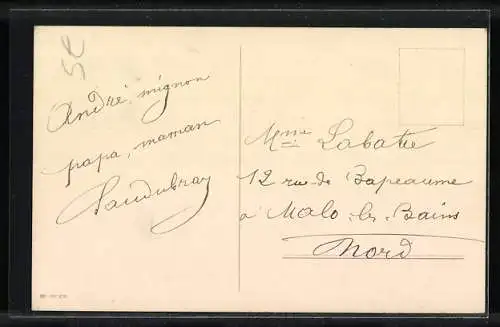 52
André, mignon
papa, maman
Mme Labatie
12 rue de Bapeaume
à Malo-les-Bains
Nord